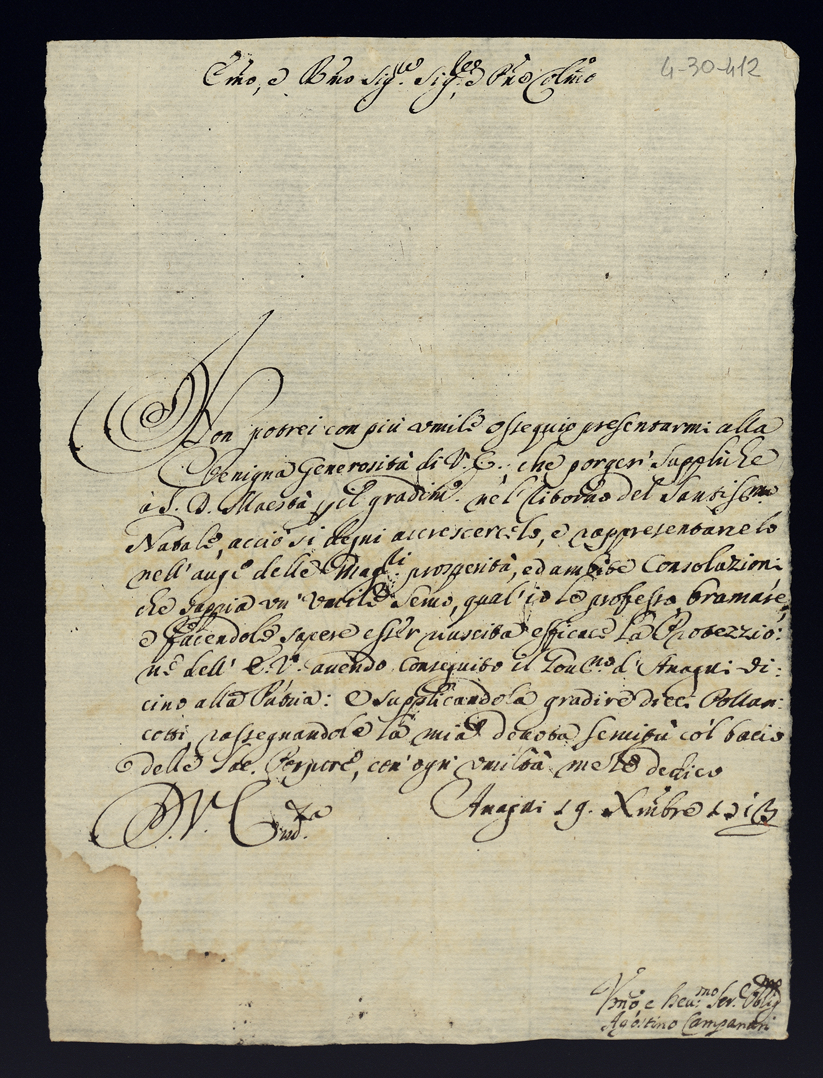 Emo, e Rmo Sig.re Sig.re e Pne Colmo
4-30-412
Non potrei con più umile ossequio presentarmi alla
benigna Generosità di V. E., che porger Suppliche
à S. D. Maestà p il gradim.to nel ritorno del Santissmo
Natale, acciò si degni accrescercelo, e rappresentarcelo
nell' auge delle Magri prosperità, ed ambite Consolazioni
che sappia un' umile Servo, qual' io le professo bramare,
e facendole sapere esser riuscita efficace la Protezzio:
ne dell' E. V. avendo conseguito il Gov.no d' Anagni vi:
cino alla Patria: e supplicandola gradire dieci Pollan:
cotti rassegnandole la mia devota servitù col bacio
delle Sac. Porpore, con ogni umiltà me le dedico
D. V. Em.za
Anagni 19. Xmbre 1713
Vmo e Deu.mo Ser.e Oblig.mo
Agostino Campanari